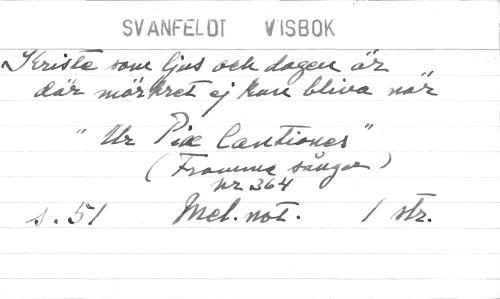 SVANFELDT VISBOK
Kriste som ljus och dagen är
där mörkret ej kan bliva när
"Ur Piæ Cantiones"
(Fromma sånger)
nr 364
s. 51 Mel. not. 1 str.